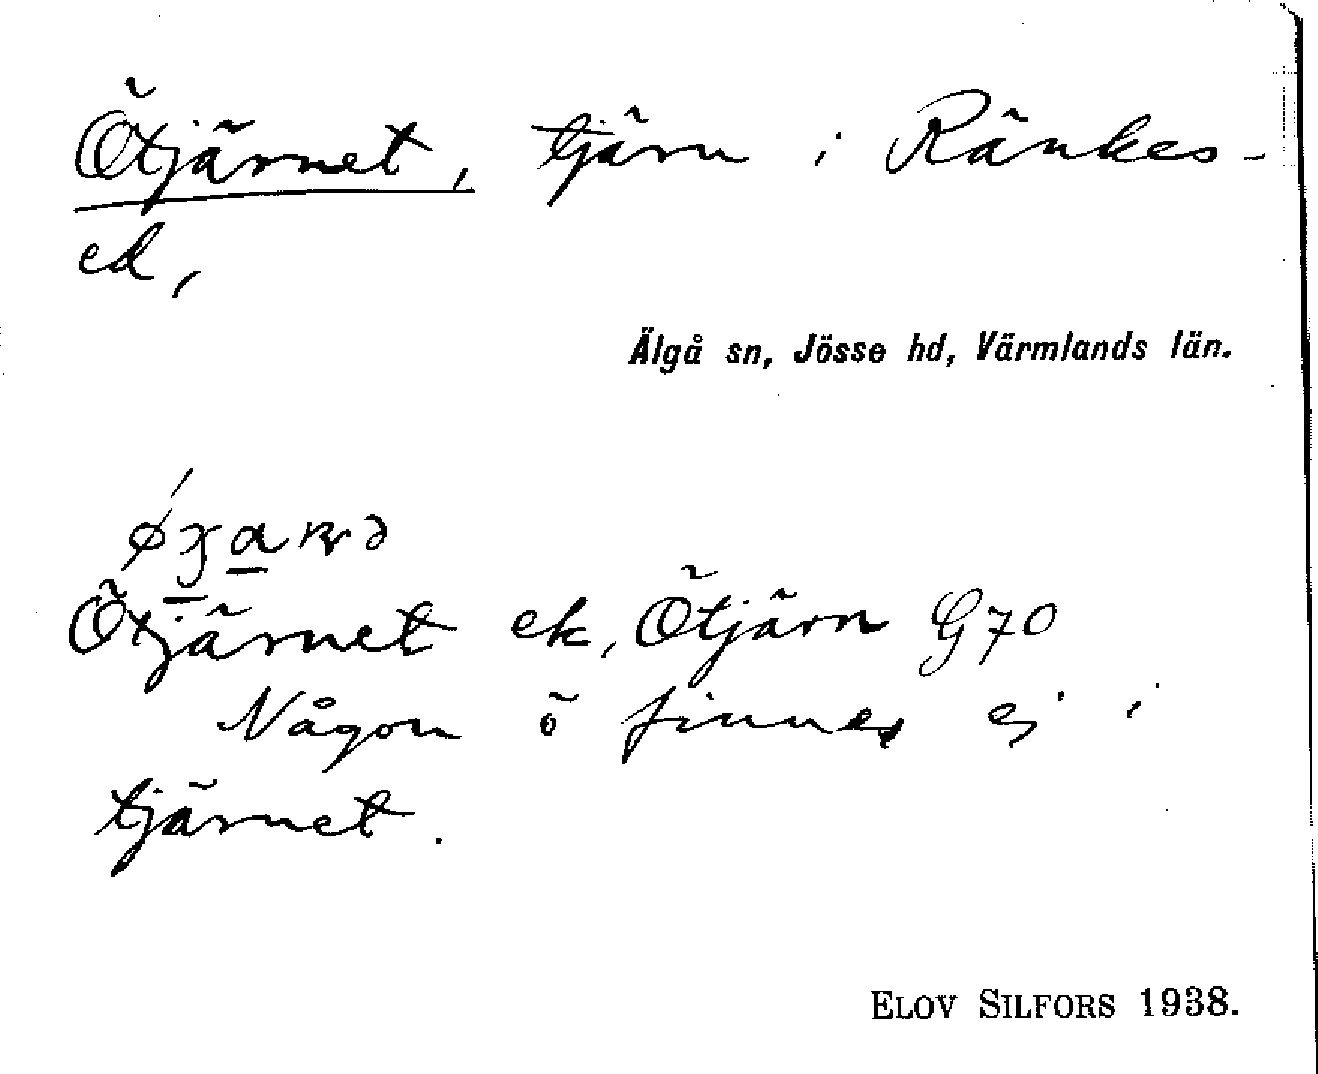 Ötjärnet, tjärn i Ränkes-
ed,
Älgå sn, Jösse hd, Värmlands län.
Ötjärnet ek, Ötjärn G70
Någon ö finnes ej i
tjärnet.
ELOV SILFORS 1938.